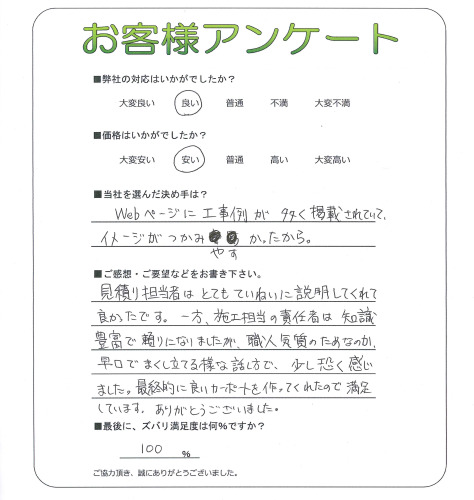 お客様アンケート
■弊社の対応はいかがでしたか？
大変良い　良い　普通　不満　大変不満
■価格はいかがでしたか？
大変安い　安い　普通　高い　大変高い
■当社を選んだ決め手は？
Webページに工事例が多く掲載されていて、
イメージがつかみやすかったから。
■ご感想・ご要望などをお書き下さい。
見積り担当者はとてもていねいに説明してくれて
良かたです。一方、施工担当の責任者は知識
豊富で頼りになりましたが、職人気質のためなのか、
早口でまくし立てる様な話し方で、少し恐く感じ
ました。最終的に良いカーポートを作ってくれたので満足
しています。ありがとうございました。
■最後に、ズバリ満足度は何%ですか？
100 %
ご協力頂き、誠にありがとうございました。